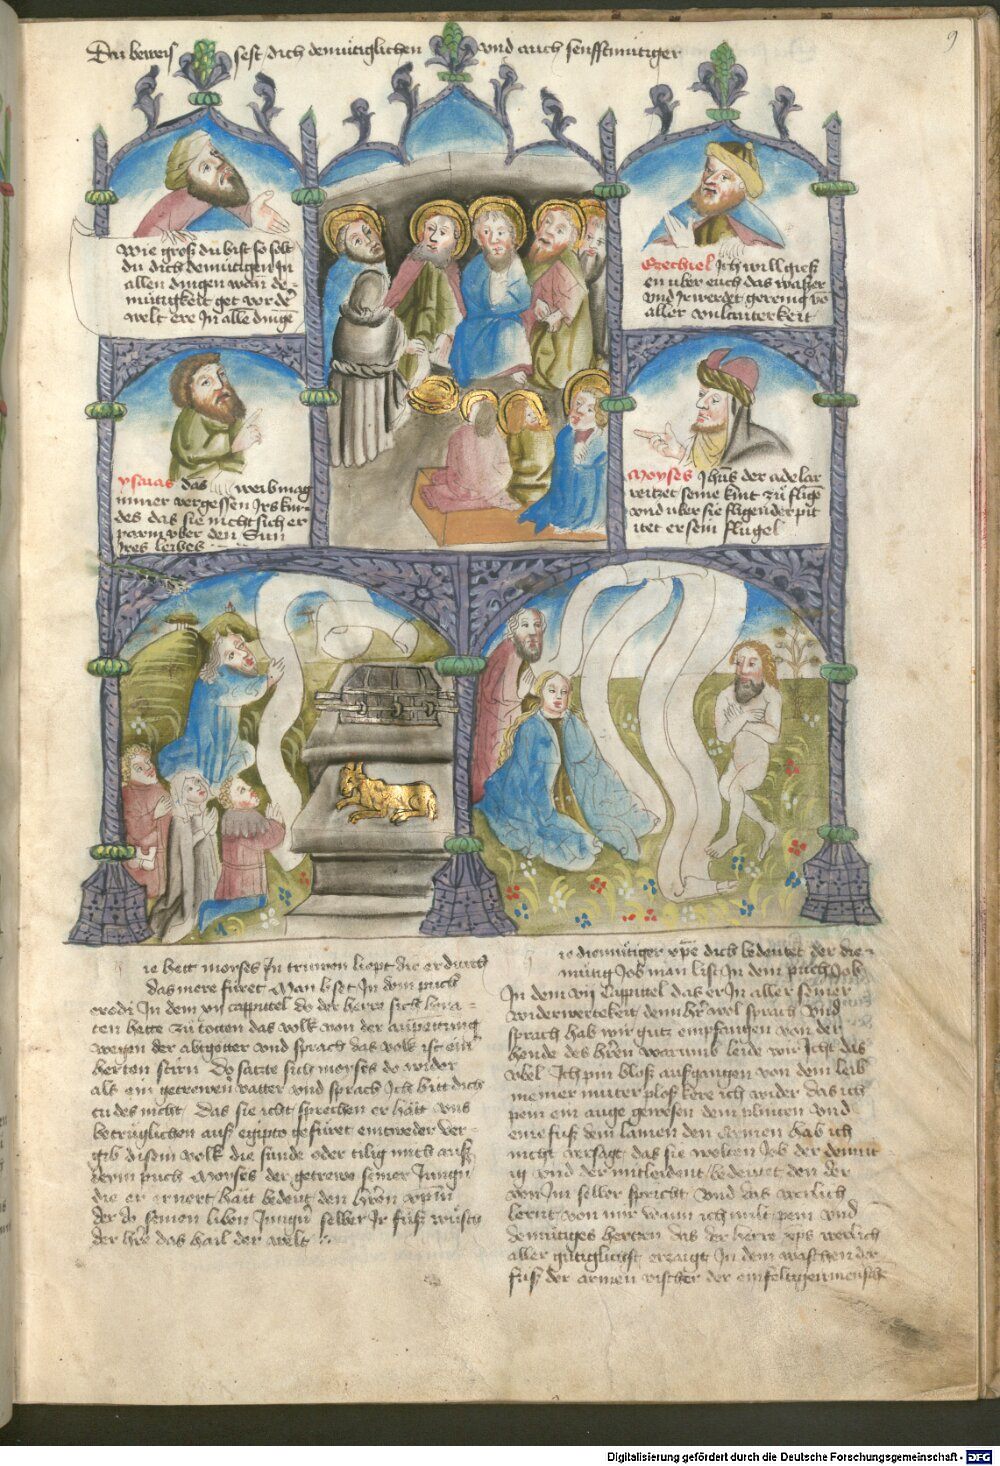 Du beweisest dich demüttiglichen vnd auch senfftmüttiger
9
Wie gros du bist so solt
du dich demüttigen In
allen dingen wan de-
müttigkeit get vor der
welt ere In alle dinge
Ezechiel Ich will gieß
en vber euch das waßer
vnd Ir werdet gereinig vo
aller vnlauterkeit
ysaias das weib mag
nimer vergessen Irs kin-
des das sie nicht sich er
parm vber den Sun
Ires leibes
Moyses Ihus der adelar
reitzet seine kint zu flige
vnd vber sie fligen der prit
itet er sein flugel
ie hett moyses In trewen liept die er durch
das mere füret Man liset In dem puch
exodi In dem cappittel do der herre sich
hette zu totten das volk von der anpettung
wegen der abtgotter vnd sprach das volk ist ein
herten stirn Do satzte sich moyses do wider
als ein getrewen vatter vnd sprach Ich bitt dich
tu des nicht das sie icht sprechen er hatt vns
betruglichen auß egipto gefüret eintweder ver-
gib disem volk die sunde oder tilig mich auß
dem puch Moyses der getrewe seiner Jungen
die er ernert hatt bedeut den herren
der do seinen liben Jungern selber Ir fuß wusch
der herre das hail der welt
ie diemüttiger xpe dich bedeutet der die-
müttig Job man list In dem puch Job
In dem vij Cappittel das er In aller seiner
widerwertikeit dem hern wol sprach vnd
sprach hab wir gutz empfangen von der
hende des hern warumb leide wir Icht das
vbel Ich pin bloß außgangen von dem leib
meiner mutter ploß kere ich wider das ich
pem ein auge gewesen dem plinten vnd
eine fuß dem lamen den armen hab ich
nicht versagt das sie wolten Job der demut
ig vnd der mitleident bedeutet den der
von Im selber spricht vnd das werlich
lernt von mir wann ich milt pem vnd
demütiges herzen das der herre xps werlich
aller gutiglichst erzaigt In dem waschen der
fuß der armen vischer der einfeltigen mensche
Digitalisierung gefördert durch die Deutsche Forschungsgemeinschaft - DFG